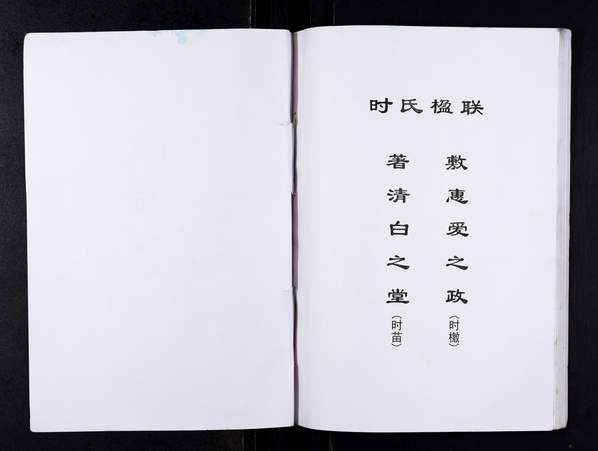 时氏楹联
敷惠爱之政
（时檄）
著清白之堂
（时苗）